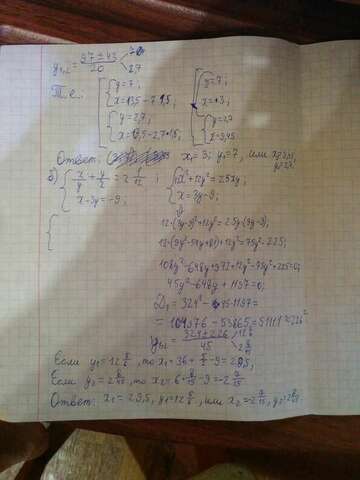 y₁,₂ = (97 ± 43)/20
2,7
Т.е.
y = 7;
x = 13,5 - 7·1,5
y = 2,7;
x = 13,5 - 2,7·1,5
y = 7;
x = 3;
y = 2,7
x = 9,45
Ответ: x₁ = 3; y₁ = 7, или
б) { x/y + y/x = 2 1/12 ;
x - 3y = -9;
12x² + 12y² = 25xy;
x = 3y - 9;
12·(3y-9)² + 12y² = 25y·(3y-9);
12·(9y² - 54y + 81) + 12y² = 75y² - 225;
108y² - 648y + 972 + 12y² - 75y² + 225 = 0;
45y² - 648y + 1197 = 0;
D₁ = 324² - 45·1197 =
= 104976 - 53865 = 51111 ≈ 226²
y₁,₂ = (324 ± 226)/45
Если y₁ = 12 , то x₁ = 36 + - 9 = 28,5;
Если y₂ = 2 , то x₂ = 6 + - 9 = -2 7/15
Ответ: x₁ = 28,5, y₁ = 12 , или x₂ = -2 7/15, y₂ = 2